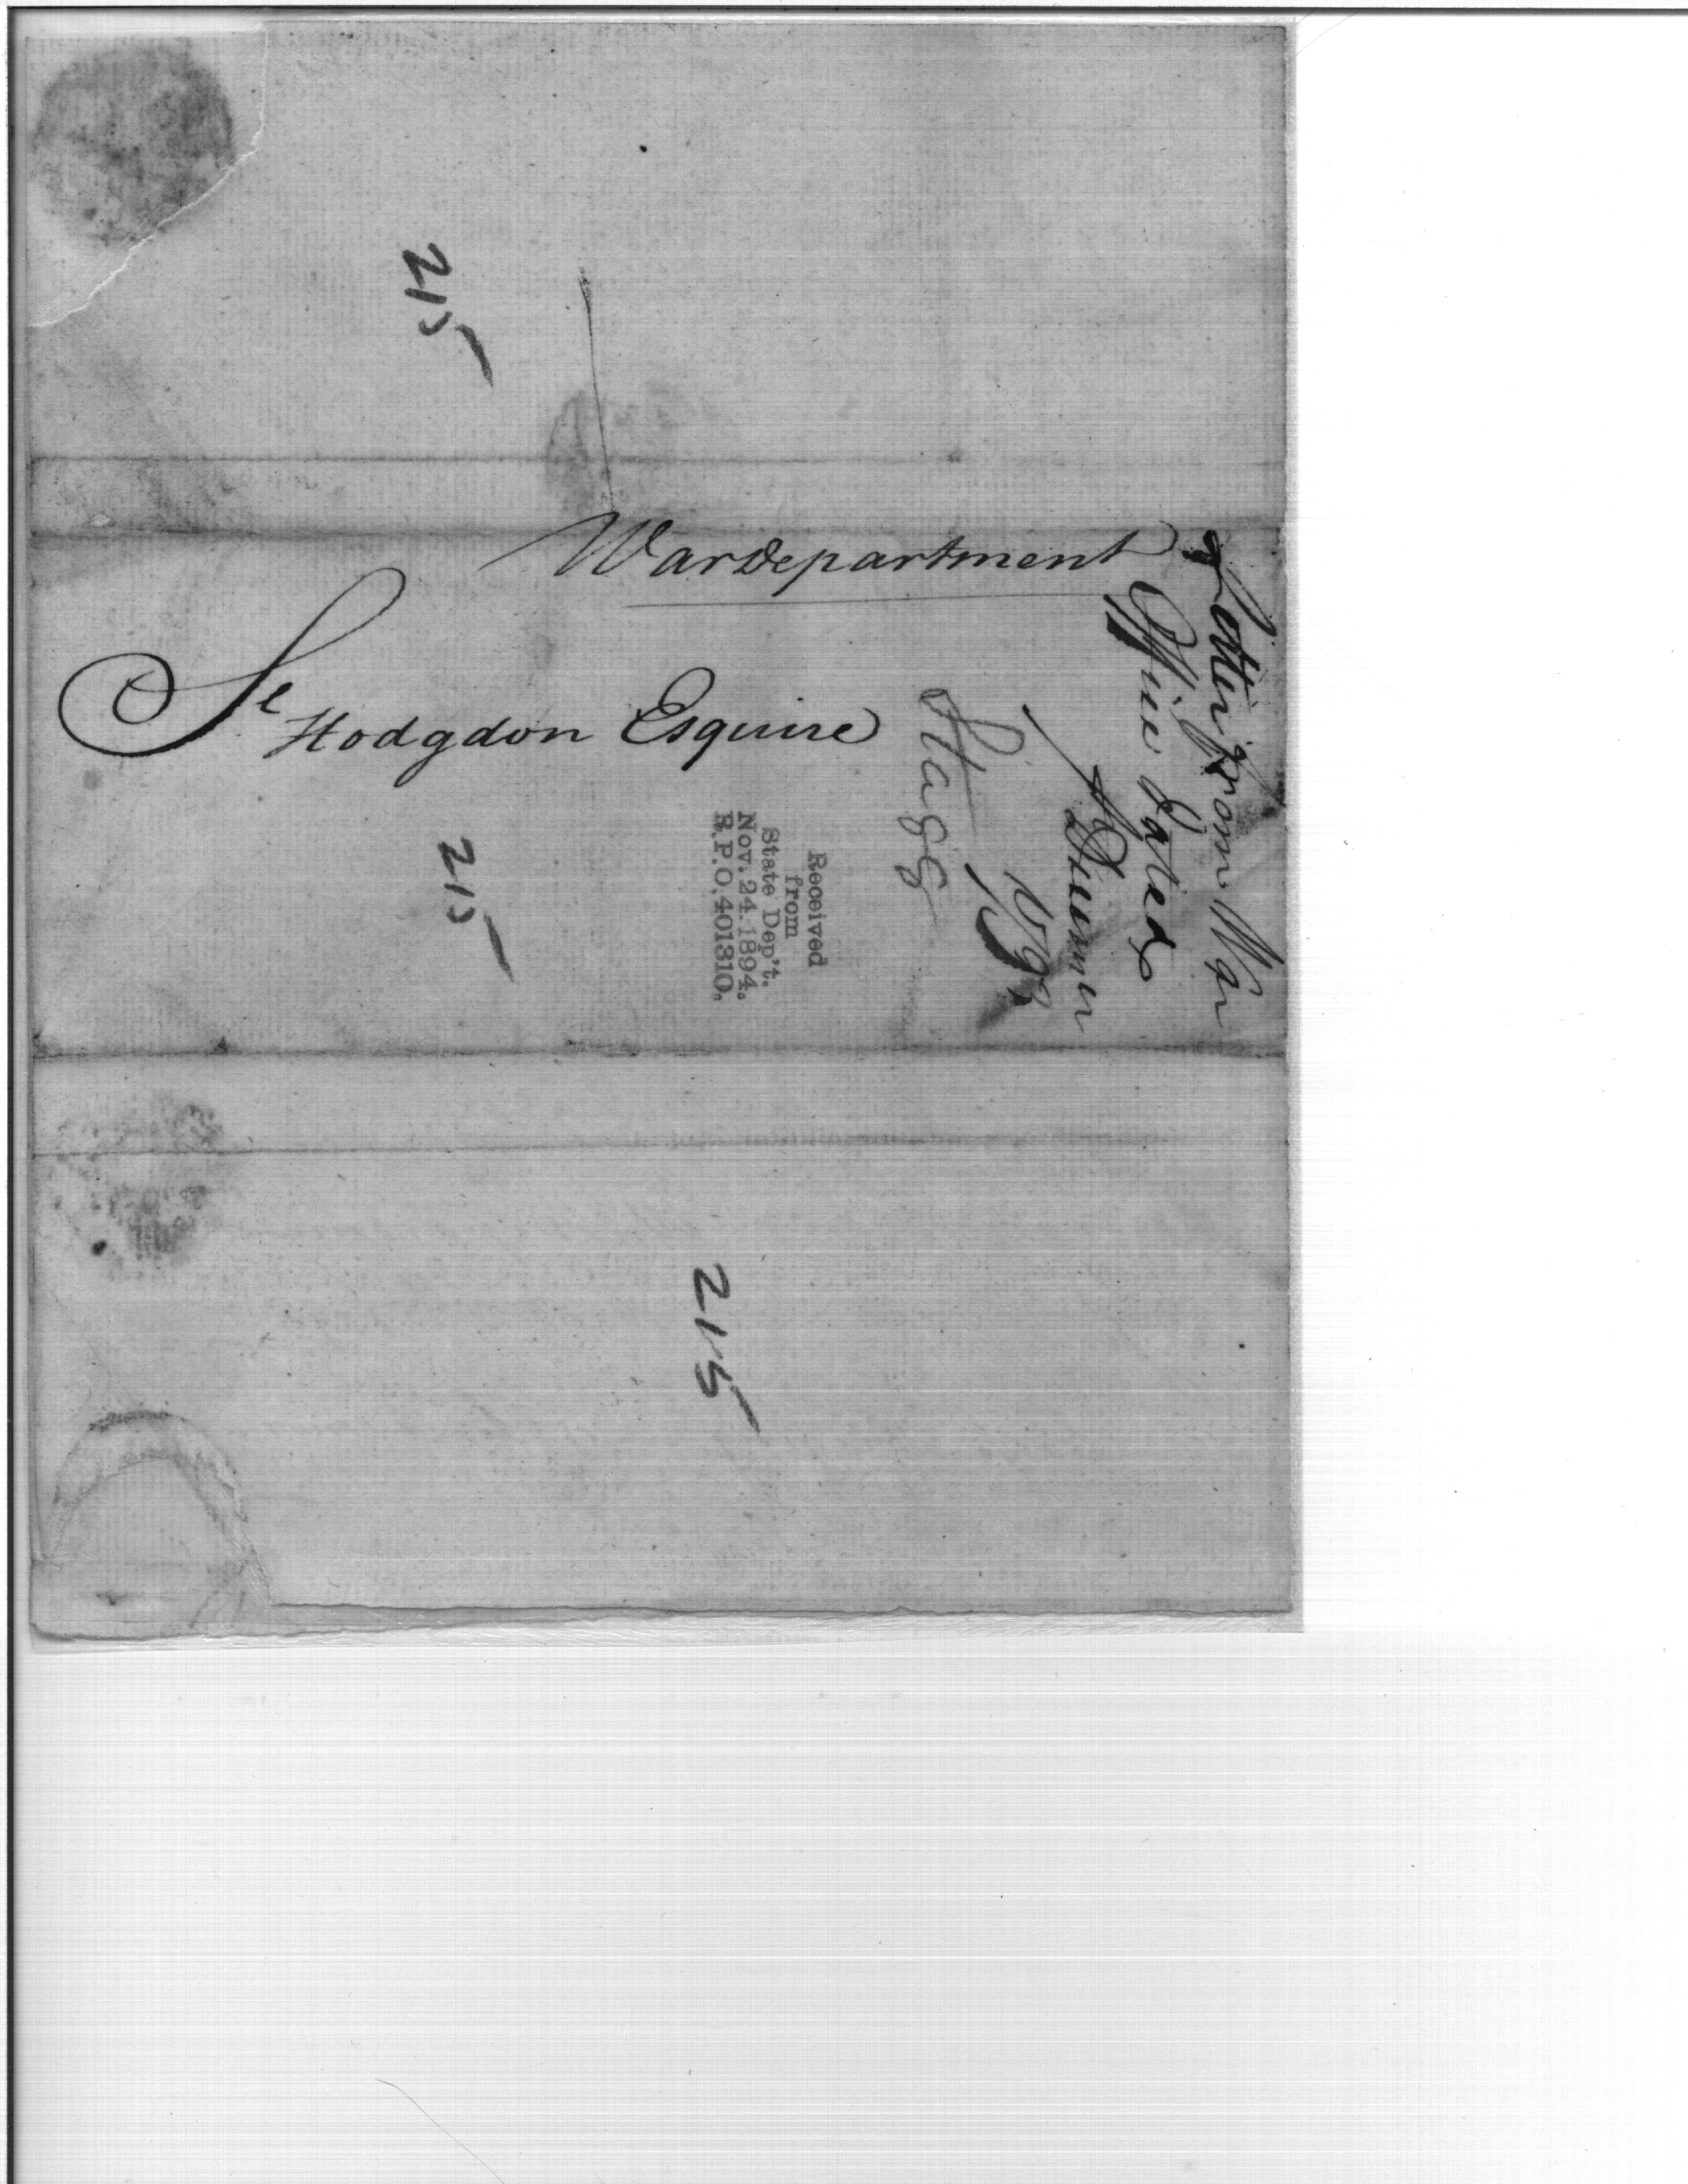 War department
Sl Hodgdon Esquire
Letter from War
Office Dated
179
Stagg
Received
from
State Dep't.
Nov. 24. 1894.
R.P.O. 401310.
215
215
215